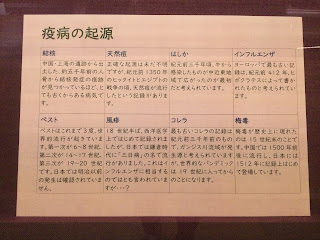 疫病の起源
結核
中国・上海の遺跡から出
土した、約五千年前の人
骨から結核発症の痕跡
が見つかっているほど、と
ても古くからある病気で
す。
天然痘
正確な起源はまだ不明
ですが、紀元前1350年
のヒッタイトとエジプトの
戦争の頃、天然痘が流行
したという記録がありま
す。
はしか
紀元前三千年頃、牛から
感染したものが中近東地
域で広がったのが最初
だと考えられています。
インフルエンザ
ヨーロッパで最も古い記
録は、紀元前412年、ヒ
ポクラテスによって書か
れたものと考えられてい
ます。
ペスト
ペストはこれまで3度、世
界的流行が起きていま
す。第一次が6~8世紀、
第二次が14~17世紀、
第三次が19~20世紀
です。日本では明治以前
の発生は確認されていま
せん。
風疹
18世紀半ば、西洋医学
界ではじめて記録されま
したが、日本では鎌倉時代
に「三日病」の名で流行
がありました。これはイ
ンフルエンザに相当する
のではとも言われていま
すが・・・？
コレラ
最も古いコレラの記録は
紀元前三百年頃のもの
で、ガンジス川流域が発
生源と考えられています
が、世界的なパンデミック
は19世紀に入ってから
のことになります。
梅毒
梅毒が歴史上に現れた
のは15世紀末のことで
す。中国では1500年前
後に流行し、日本には
1512年に記録上はじ
めて登場しています。